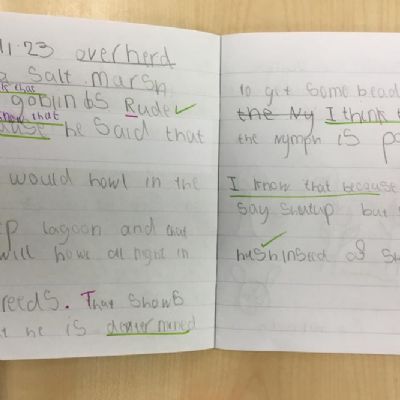 11.23 overherd
a salt marsh
k that
goblin is Rude
know that
ause he said that
would howl in the
lagoon and that
will howe all night in
reeds. That shows
t he is determined
to get some bead
the Ny I think t
the nymph is po
I know that because
say shutup but
hush insead of sh